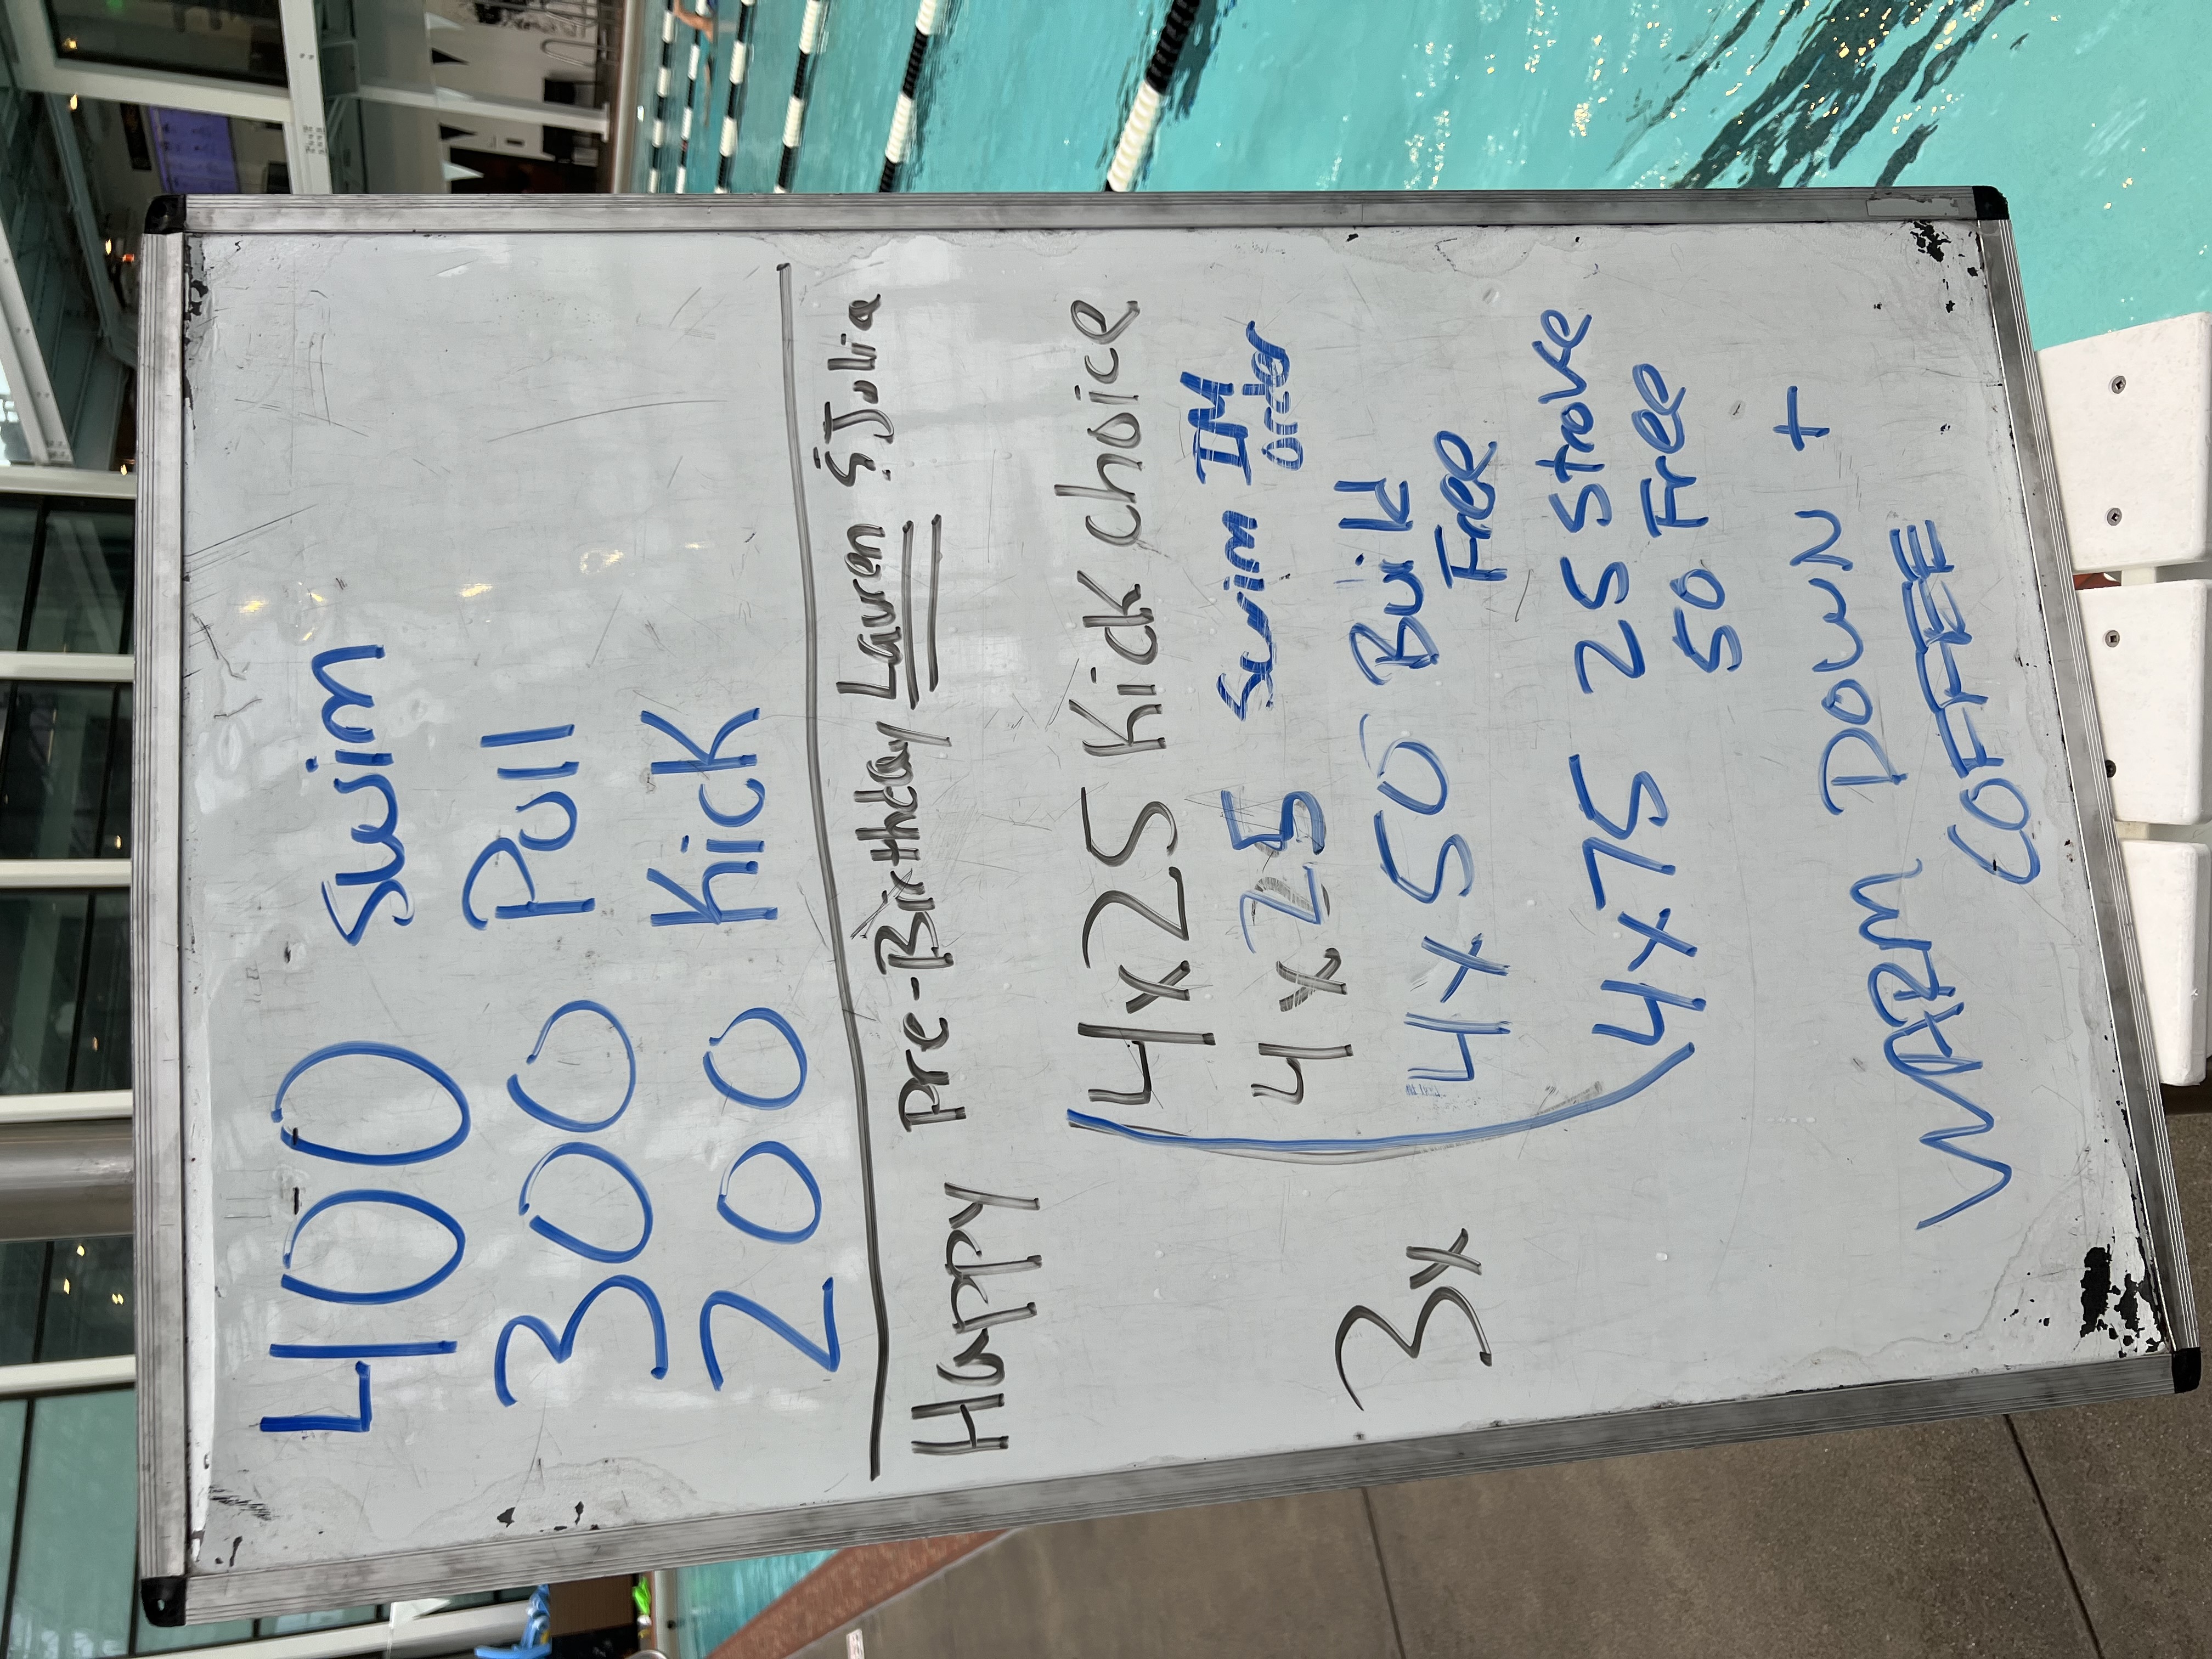 400 Swim
300 Pull
200 Kick
Happy Pre-Birthday Lauren S. Julia
4x25 Kick choice
4 x 25 Swim IM
order
4 x 50 Build
Free
3x
4x75 25 Stroke
50 Free
WARM DOWN +
COFFEE